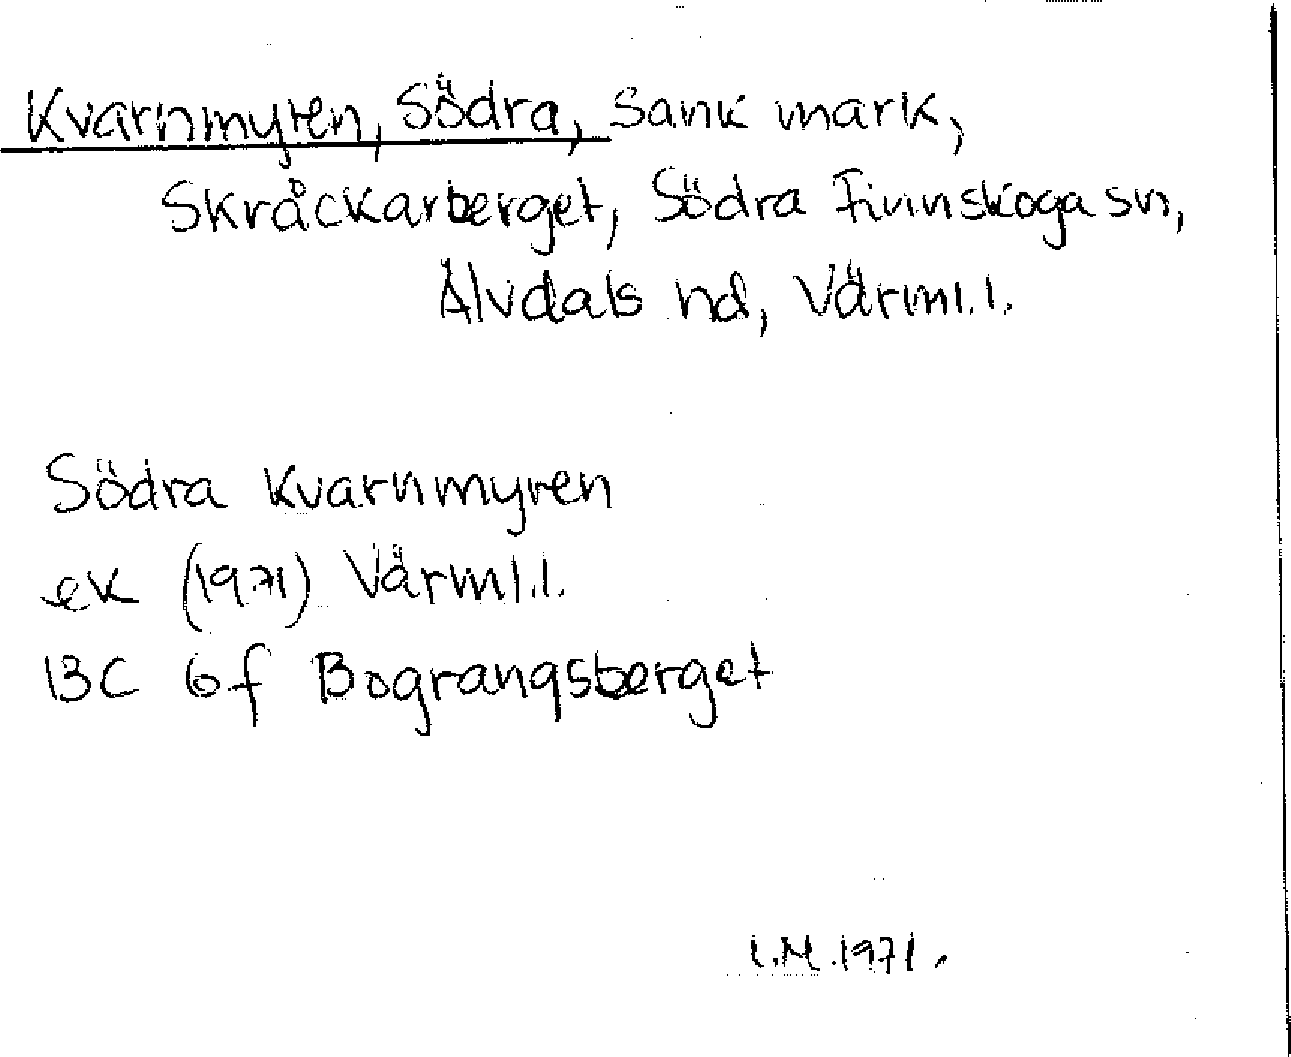 Kvarnmyren, Södra, Sank mark,
Skråckarberget, Södra Finnskoga sn,
Älvdals hd, Värml.l.
Södra Kvarnmyren
ek (1971) Värml.l.
13C 6f Bograngsberget
I.M.1971.